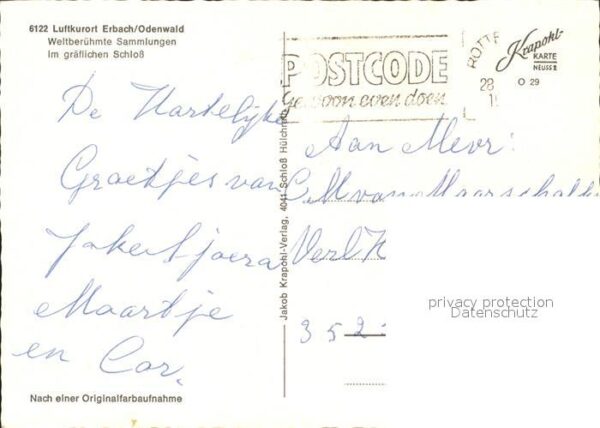 6122 Luftkurort Erbach/Odenwald
Weltberühmte Sammlungen
Im gräflichen Schloß
POSTCODE
gewoon even doen
ROTTE
28
Krapohl-
KARTE
NEUSS 2
O 29
De Hartelijke
Groetjes van
Maartje
en Cor.
Aan Mevr:
352
Jakob Krapohl-Verlag, 4041 Schloß Hülchrath
privacy protection
Datenschutz
Nach einer Originalfarbaufnahme